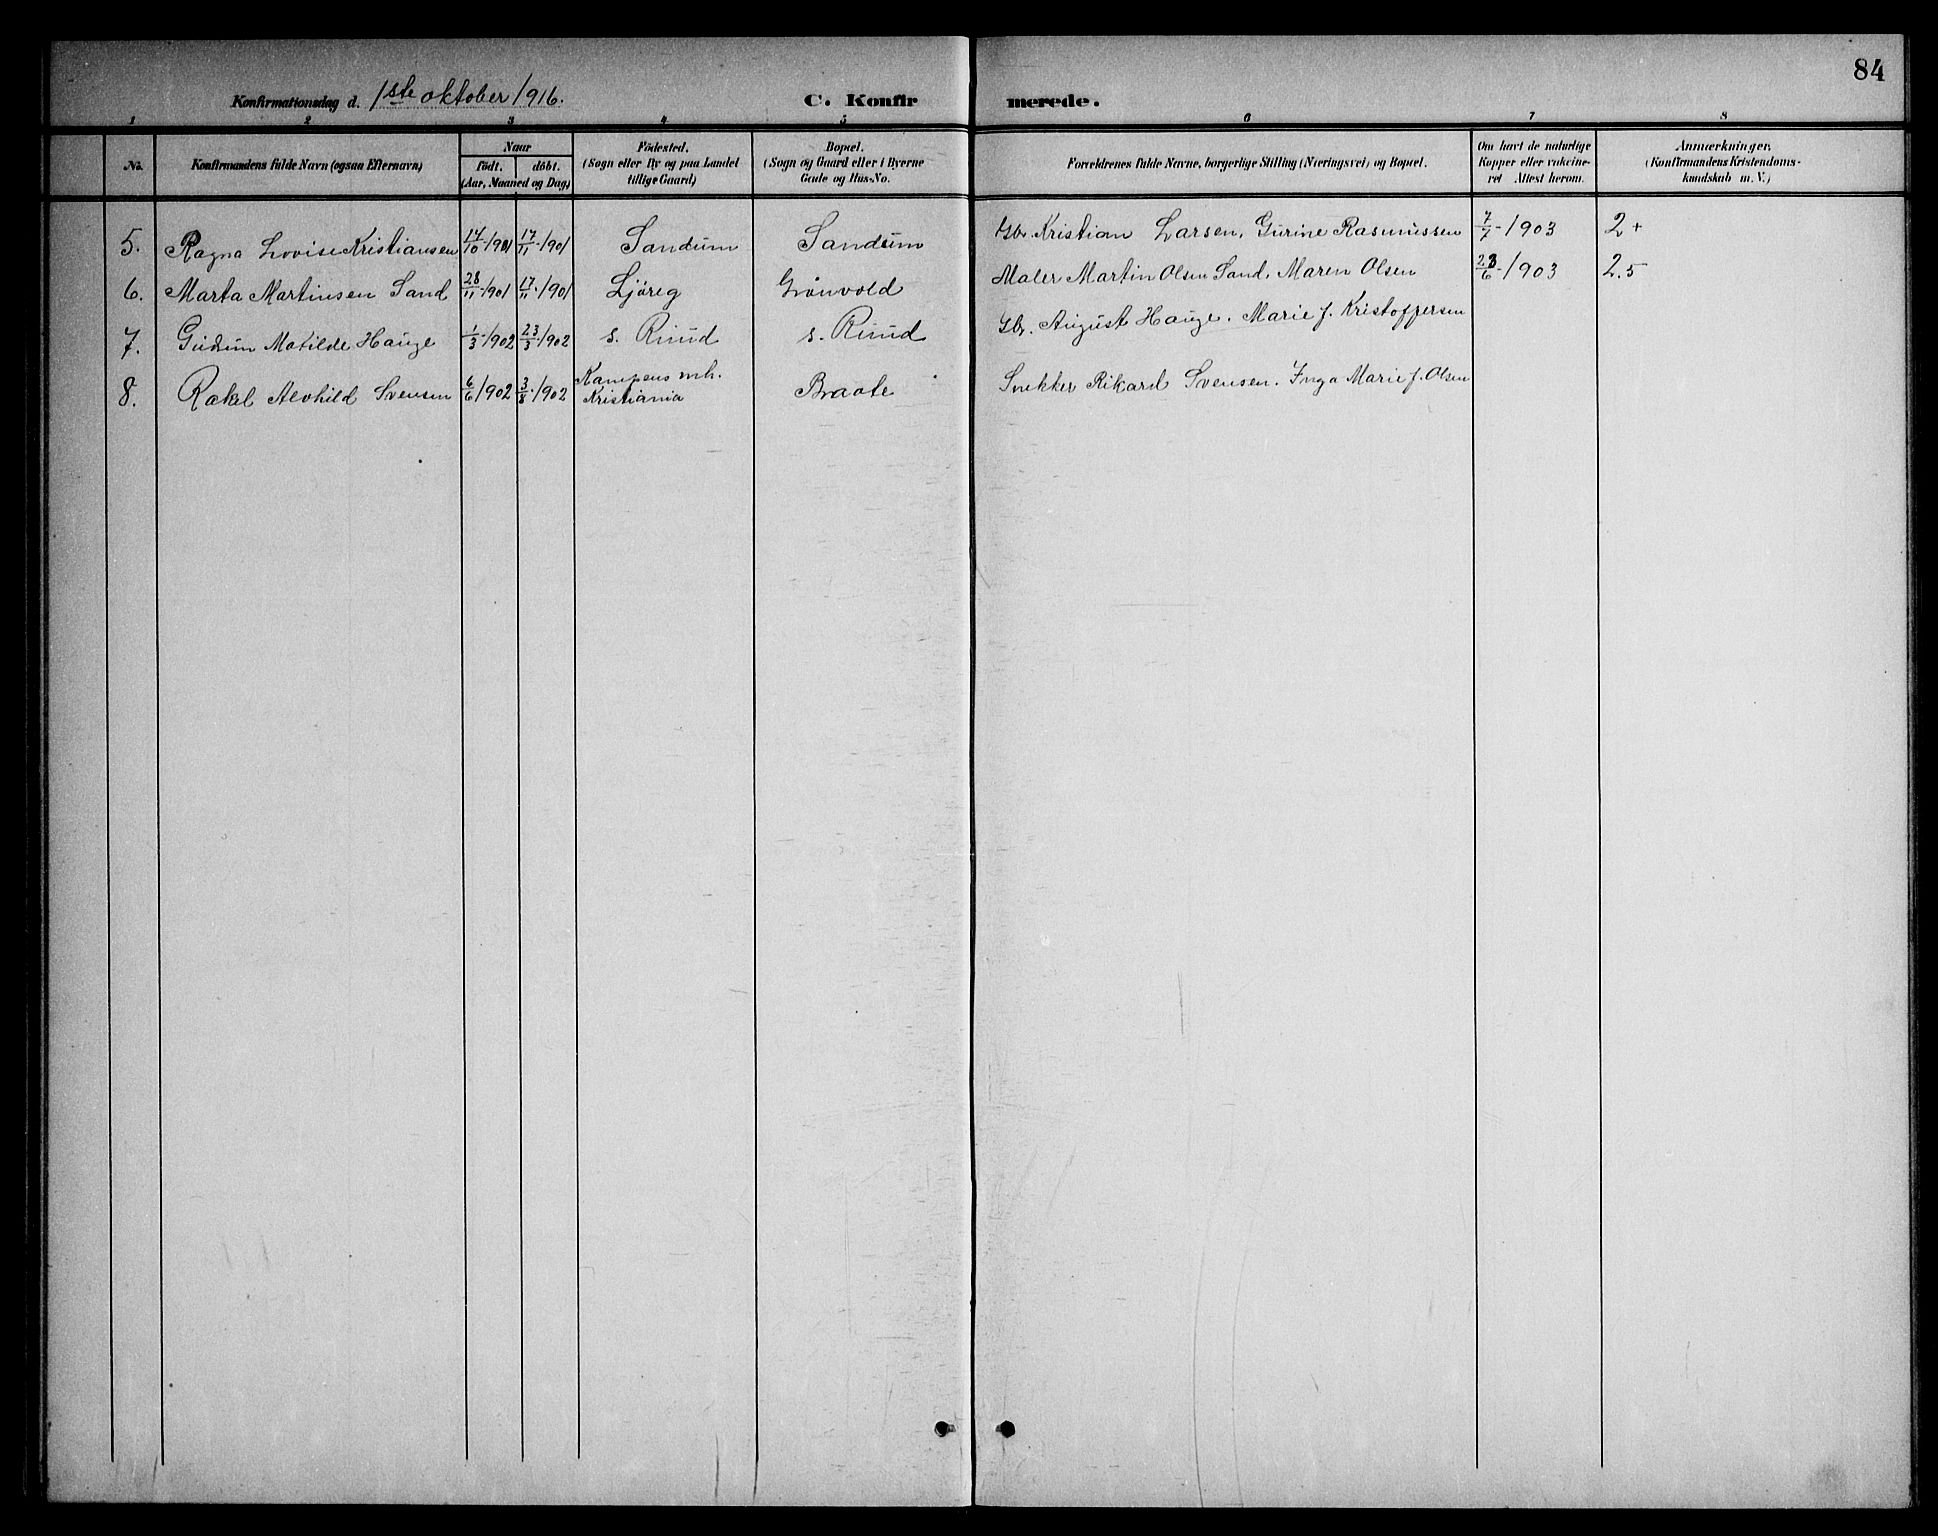 84
Konfirmationsdag d. 1ste oktober 1916. C. Konfirmerede.
1 2 3 4 5 6 7 8
No. Konfirmandens fulde Navn (ogsaa Efternavn) Naar født. døbt. (Aar, Maaned og Dag) Fødested. (Sogn eller By og paa Landet tillige Gaard) Bopæl. (Sogn og Gaard eller i Byerne Gade og Hus-No. Forældrenes fulde Navne, borgerlige Stilling (Næringsvei) og Bopæl. Om havt de naturlige Kopper eller vakcineret Attest herom. Anmærkninger. (Konfirmandens Kristendomskundskab m. V.)
5. Ragna Lovise Kristiansen 14/10 1901 17/11 1901 Sandum Sandum Gbr. Kristian Larsen, Gurine Rasmussen 7/7 - 1903 2+
6. Marta Martinsen Sand 28/11 1901 17/11 1901 Ljöreg Grönvold Maler Martin Olsen Sand, Maren Olsen 23/6 - 1903 2.5
7. Gudrun Matilde Hauge 1/3 1902 23/3 1902 s. Ruud s. Ruud Gbr. August Hauge. Marie f. Kristoffersen
8. Rakel Alvhild Svensen 6/6 1902 3/8 1902 Kampens mh. Kristiania Braate Snekker Rikard Svensen. Inga Marie f. Olsen